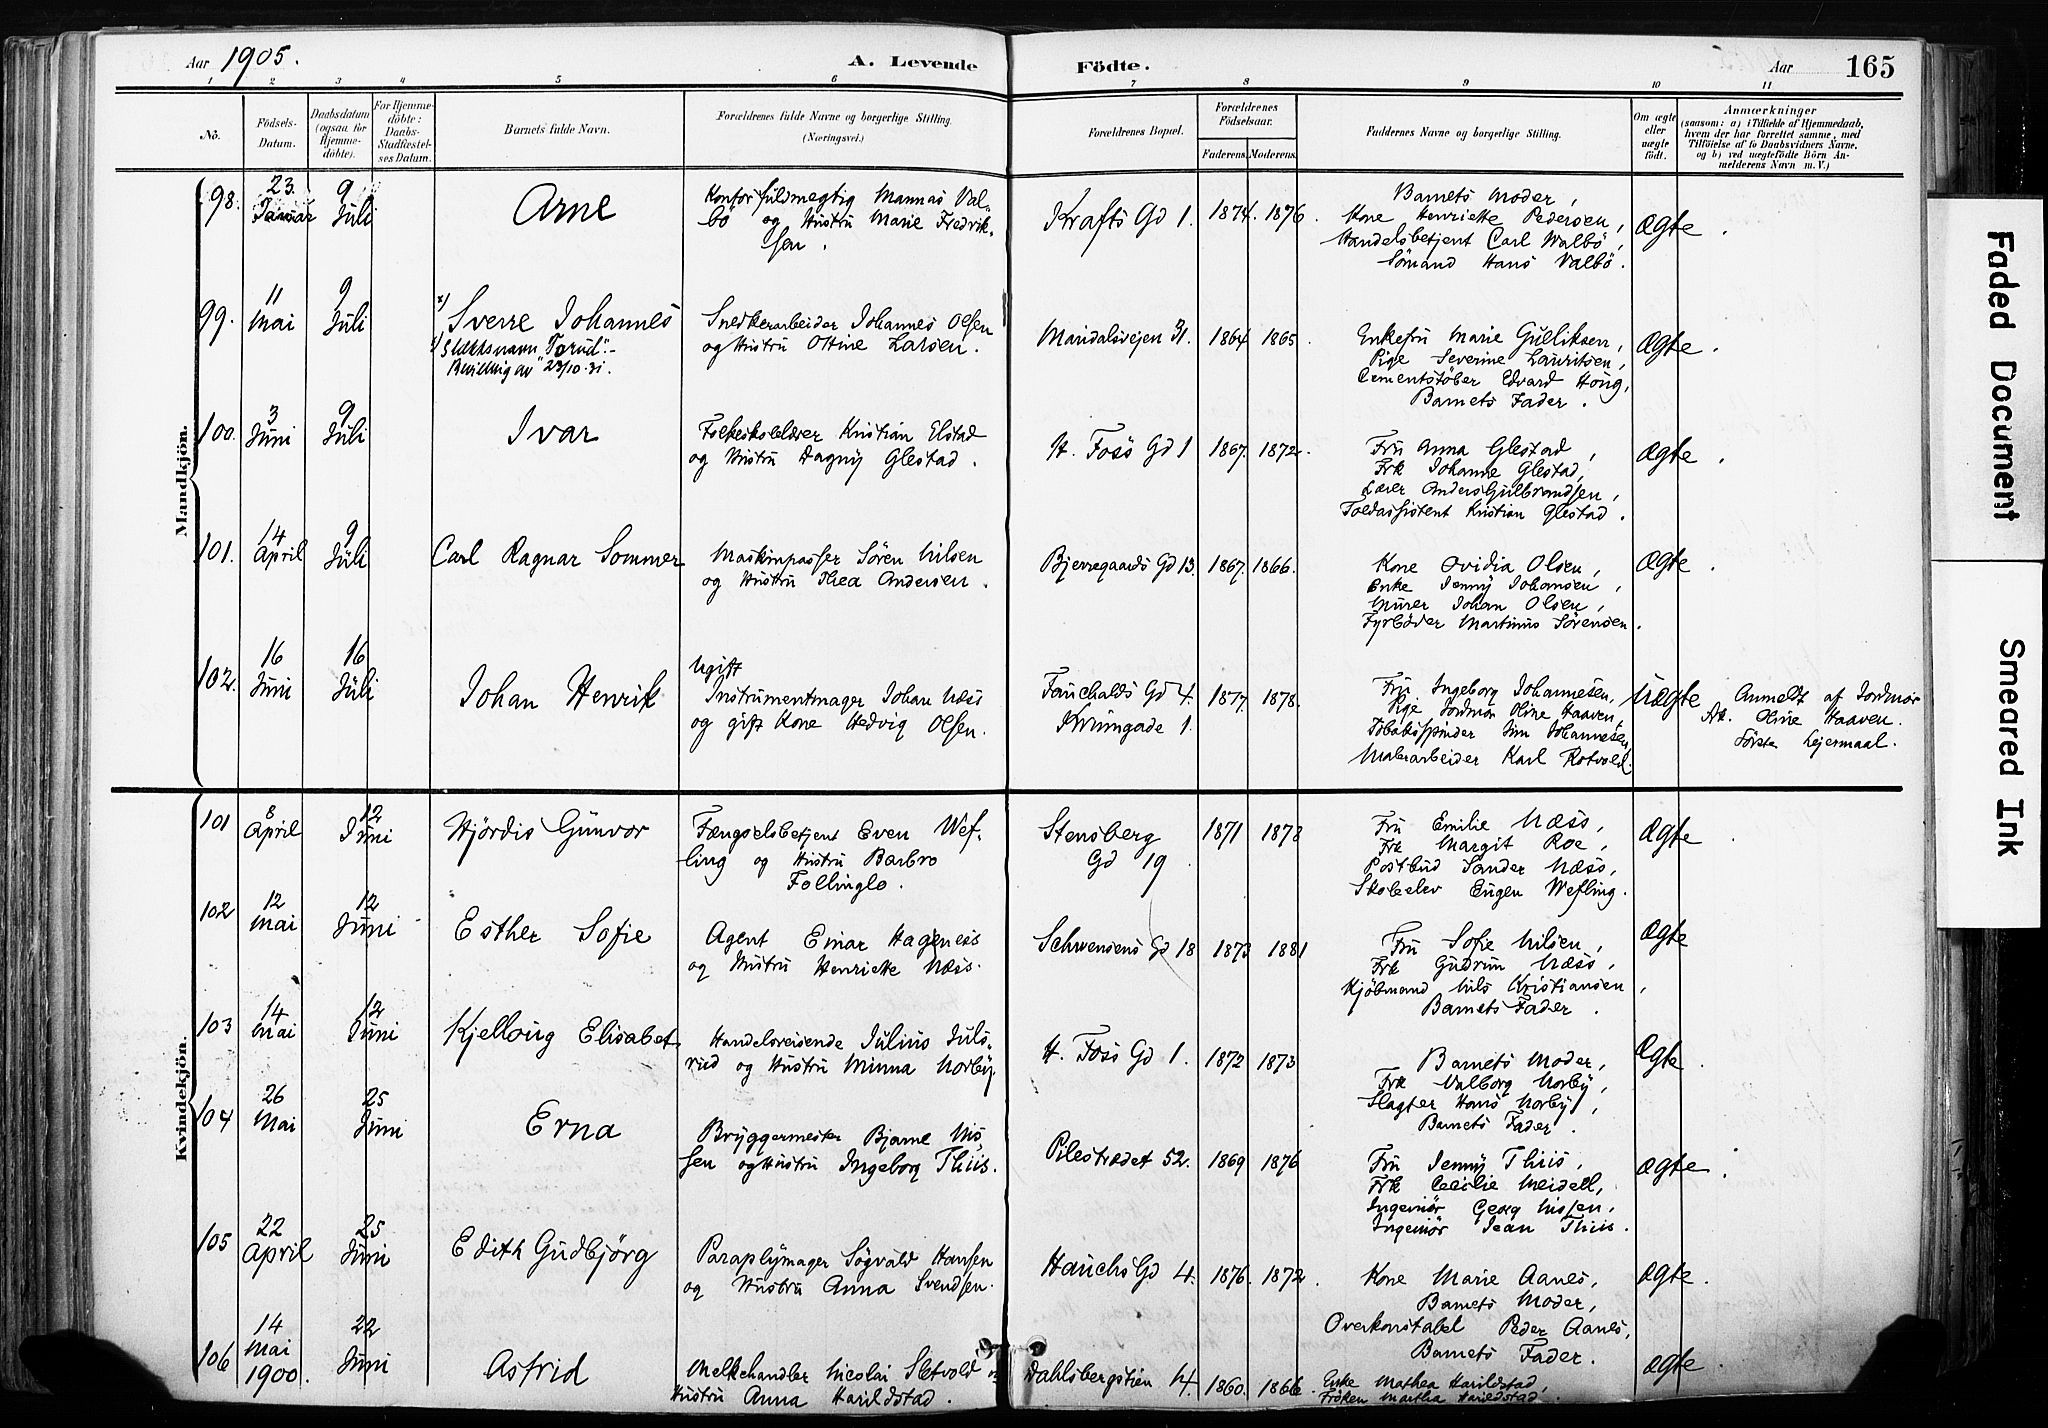 Aar 1905.
A. Levende Födte.
Aar 165
1 2 3 4 5 6 7 8 9 10 11
No.
Födsels-Datum.
Daabsdatum (ogsaa for Hjemme-döbte).
For Hjemme-döbte: Daabs-Stadfæstel-ses Datum.
Barnets fulde Navn.
Forældrenes fulde Navne og borgerlige Stilling. (Næringsvei.)
Forældrenes Bopæl.
Forældrenes Födselsaar.
Faderens. Moderens.
Faddernes Navne og borgerlige Stilling.
Om ægte eller uægte födt.
Anmærkninger
(saasom: a) i Tilfælde af Hjemmedaab,
hvem der har forrettet samme, med
Tilföielse af to Daabsvidners Navne.
og b) ved uægtefödte Börn An-
melderens Navn m. V.)
Mandkjön.
98. 23 Januar 9 Juli
Arne
Kontorfuldmægtig Mannas Val-
bö og Hustru Marie Fredrik-
sen.
Krafts Gd 1. 1874. 1876.
Barnets Moder,
Kone Henriette Pedersen,
Handelsbetjent Carl Walbö,
Sömand Hans Valbö.
Ægte.
99. 11 Mai 9 Juli
x) Sverre Johannes
x) Slektsnavn "Torud".-
Bevilling av 23/10.31.
Snedkerarbeider Johannes Olsen
og Hustru Ottine Larsen.
Maridalsvejen 31. 1864 1865.
Enkefru Marie Gulliksen,
Pige Severine Lauritsen,
Cementstöber Edvard Houg,
Barnets Fader.
Ægte.
100. 3 Juni 9 Juli
Ivar
Folkeskolelærer Kristian Elstad
og Hustru Dagny Glestad.
H. Foss Gd 1 1867. 1872.
Fru Anna Glestad,
Frk Johanne Glestad,
Lærer Anders Gulbrandsen,
Toldassistent Kristian Glestad.
Ægte.
101. 14 April 9 Juli
Carl Ragnar Sommer
Maskinpasser Sören Nilsen
og Hustru Thea Andersen.
Bjerregaards Gd 13. 1867. 1866.
Kone Ovidia Olsen,
Enke Jenny Johansen,
Murer Johan Olsen,
Fyrböder Martinus Sörensen.
Ægte.
102. 16 Juni 16 Juli
Johan Henrik
Ugift
Instrumentmager Johan Næss
og gift Kone Hedvig Olsen.
Fauchalds Gd 4.
Krumgade 1.
1877. 1878.
Fru Ingeborg Johannesen,
Pige Jordmor Oline Haaven,
Tobaksspinder Johannesen,
Malerarbeider Karl Rotvold.
Uægte
Anmeldt af Jordmor
Oline Haaven.
Förste Lejermaal.
Kvindekjön.
101 8 April 12 Juni
Hjördis Gunvor
Fængselsbetjent Even Wef-
ling og Hustru Barbro
Follinglo.
Stensberg
Gd 19.
1871 1878
Fru Emilie Næss,
Frk Margit Roe,
Postbud Sander Næss,
Skoleelev Eugen Wefling.
Ægte
102 12 Mai 12 Juni
Esther Sofie
Agent Einar Hageness
og Hustru Henriette Næss.
Schwensens Gd 18 1873 1881
Fru Sofie Nilsen,
Frk Gudrun Næss,
Kjöbmand Nils Kristiansen,
Barnets Fader.
Ægte
103 14 Mai 12 Juni
Kjellaug Elisabet
Handelsreisende Julius Juls-
rud og Hustru Minna Norby
H. Foss Gd 1. 1872 1873
Barnets Moder,
Frk Valborg Norby,
Slagter Hans Norby,
Barnets Fader.
Ægte.
104 26 Mai 25 Juni
Erna
Bryggermester Bjarne Nis
sen og Hustru Ingeborg Thiis.
Pilestrædet 52. 1869 1876
Fru Jenny Thiis,
Frk Cecilie Meidell,
Ingeniör Georg Nissen,
Ingeniör Jean Thiis.
Ægte.
105 22 April 25 Juni
Edith Gudbjörg
Paraplymager Sigvald Hansen
og Hustru Anna Svendsen.
Hauchs Gd 4. 1876. 1872.
Kone Marie Aanes,
Barnets Moder,
Overkonstabel Peder Aanes,
Barnets Fader.
Ægte.
106 14 Mai 1900. 22 Juni
Astrid
Melkehandler Nicolai Sletvold
Hustru Anna Harildstad.
Dahlsbergstien 4. 1860. 1866.
Enke Mathea Harildstad,
Fröken Martha Harildstad.
Ægte.
Faded Document
Smeared Ink